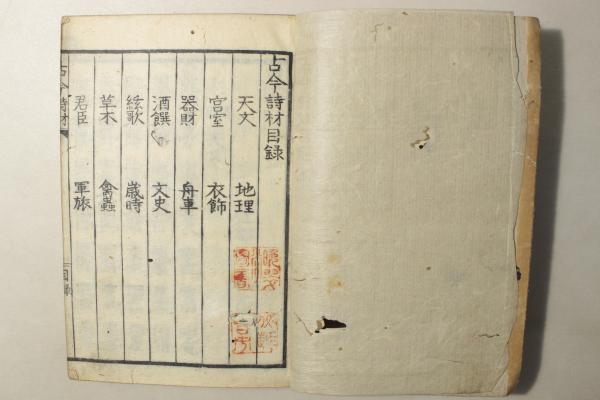 古今詩材目録
天文 地理
宮室 衣飾
器財 舟車
酒饌 文史
絃歌 歳時
草木 禽蟲
君臣 軍旅
古今詩材 目録